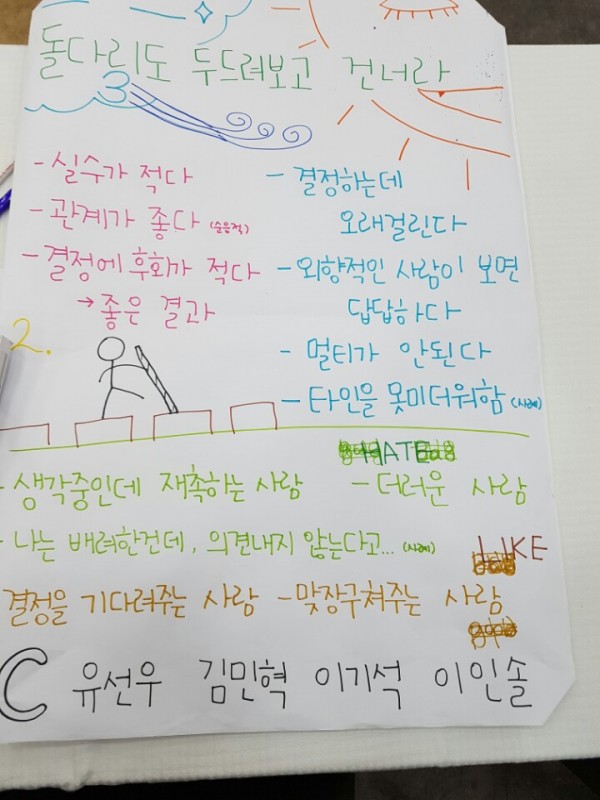 돌다리도 두드려보고 건너라
3
- 실수가 적다
- 관계가 좋다 (순응적)
- 결정에 후회가 적다
→ 좋은 결과
- 결정하는데
오래걸린다
- 외향적인 사람이 보면
답답하다
- 멀티가 안된다
- 타인을 못미더워함 (사례)
2.
HATE
- 생각중인데 재촉하는 사람
- 더러운 사람
- 나는 배려한건데, 의견내지 않는다고... (사례)
LIKE
결정을 기다려주는 사람 - 맞장구쳐주는 사람
C 유선우 김민혁 이기석 이인솔